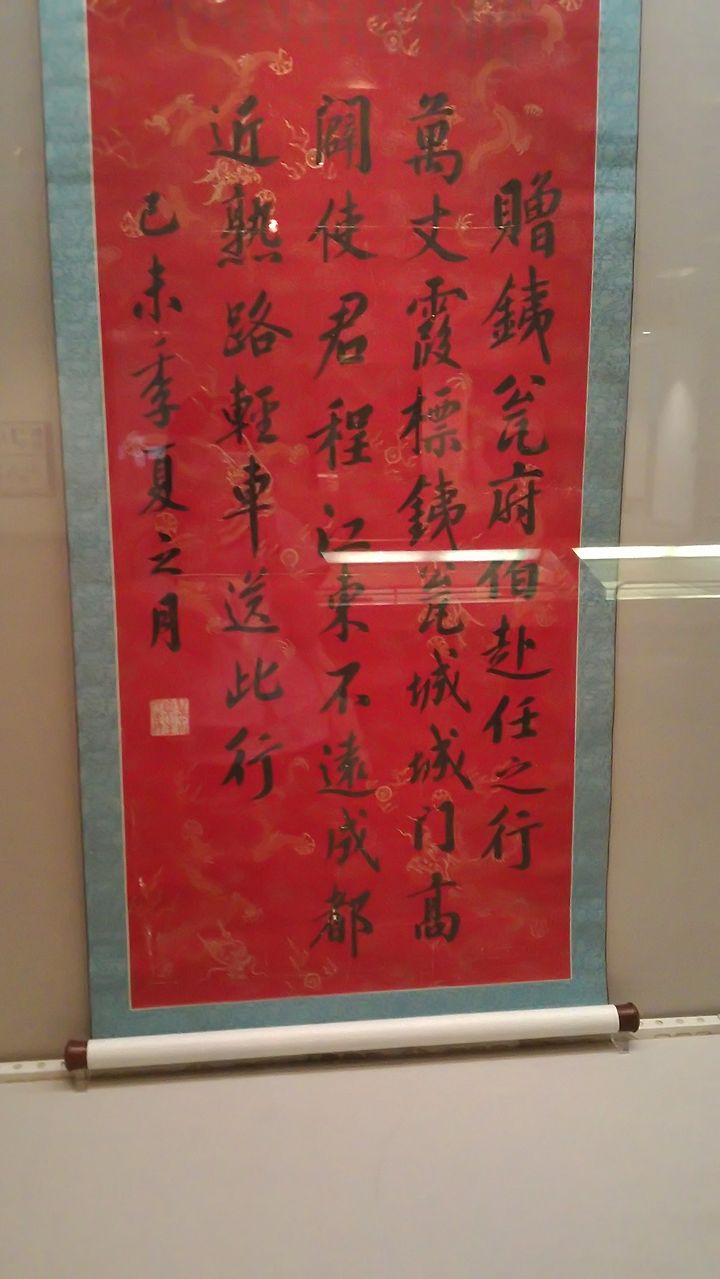 贈銕瓮府伯赴任之行
萬丈霞標銕瓮城城门高
闢使君程江東不遠成都
近熟路輕車送此行
己未季夏之月